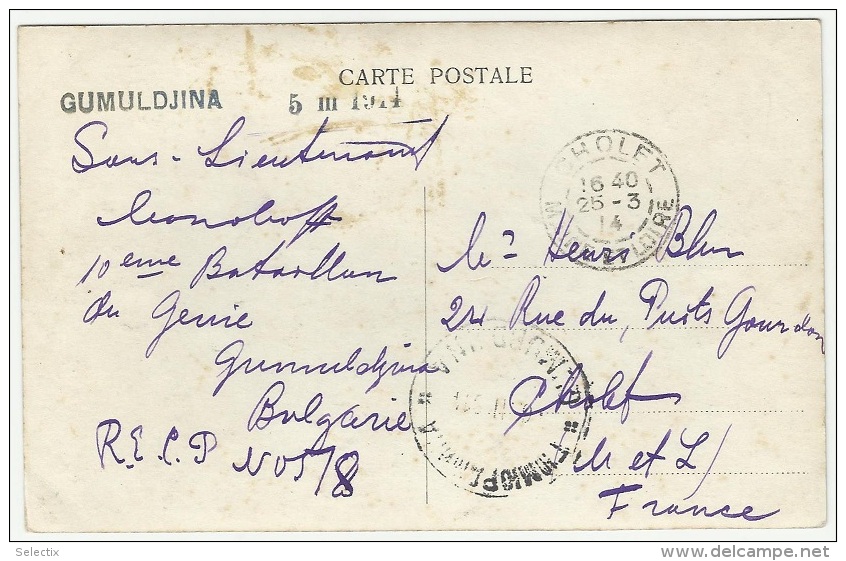 CARTE POSTALE
GUMULDJINA 5 III 1914
Sous-Lieutenant
10 eme Bataillon
du Genie
Gumuldjina
Bulgarie
R.E.C.P N057/8
CHOLET
16 40
25 - 3
14
M ET LOIRE
Mr Henri Blun
24 Rue du Puits Gourdon
Cholet
M et L/
France
Selectix
delcampe.net